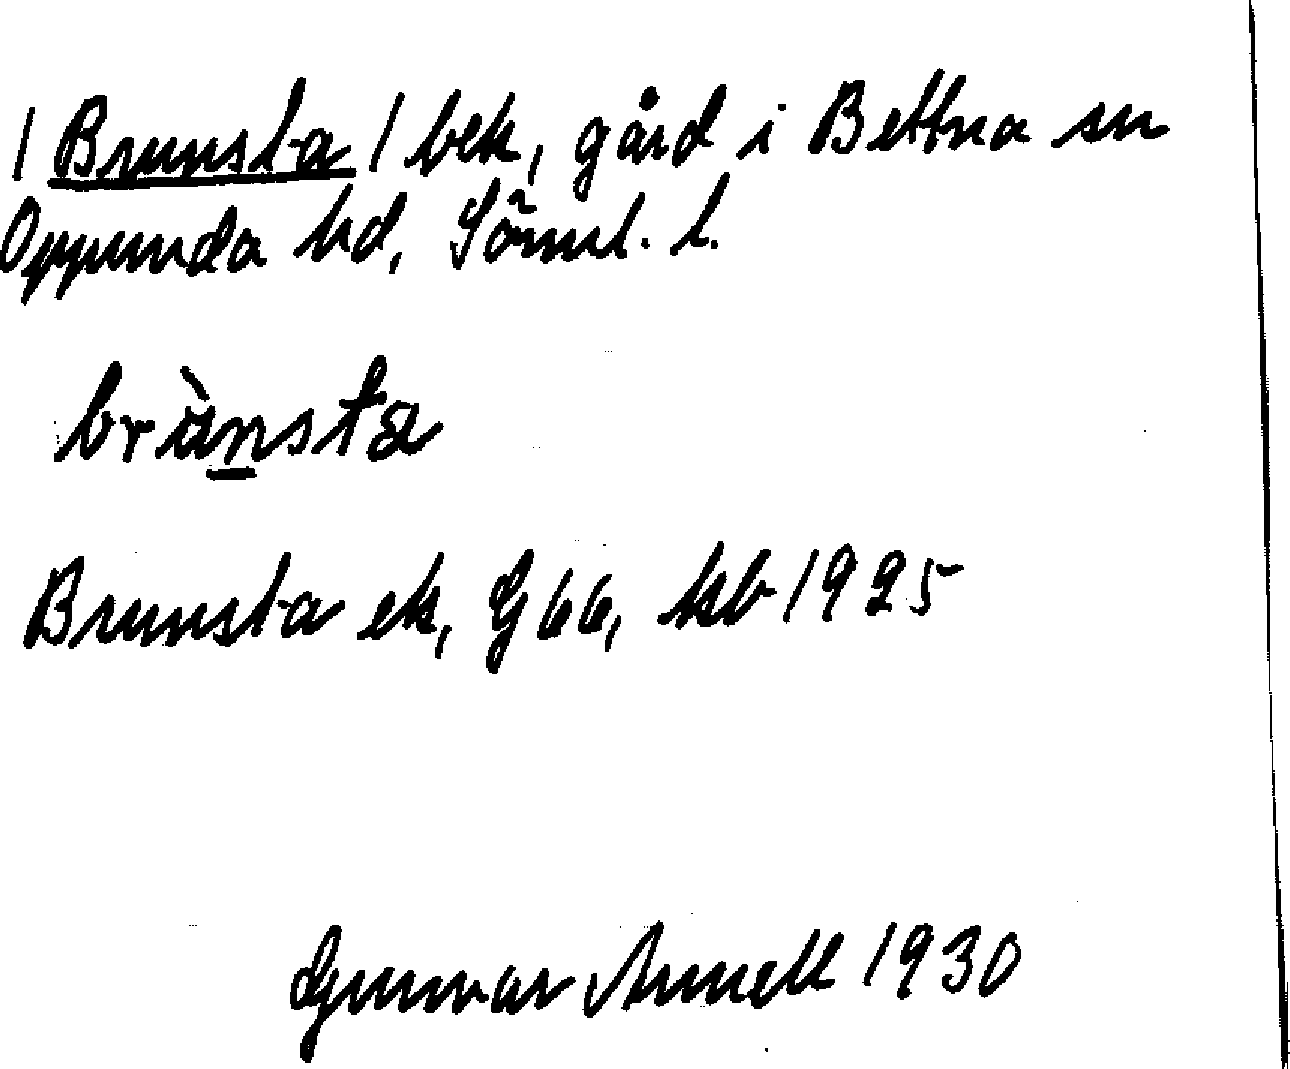 / Brunsta / bek, gård i Bettna sn
Oppunda hd, Söml. l.
brùnsta
Brunsta ek, G 66, kb 1925
Gunnar Arnell 1930